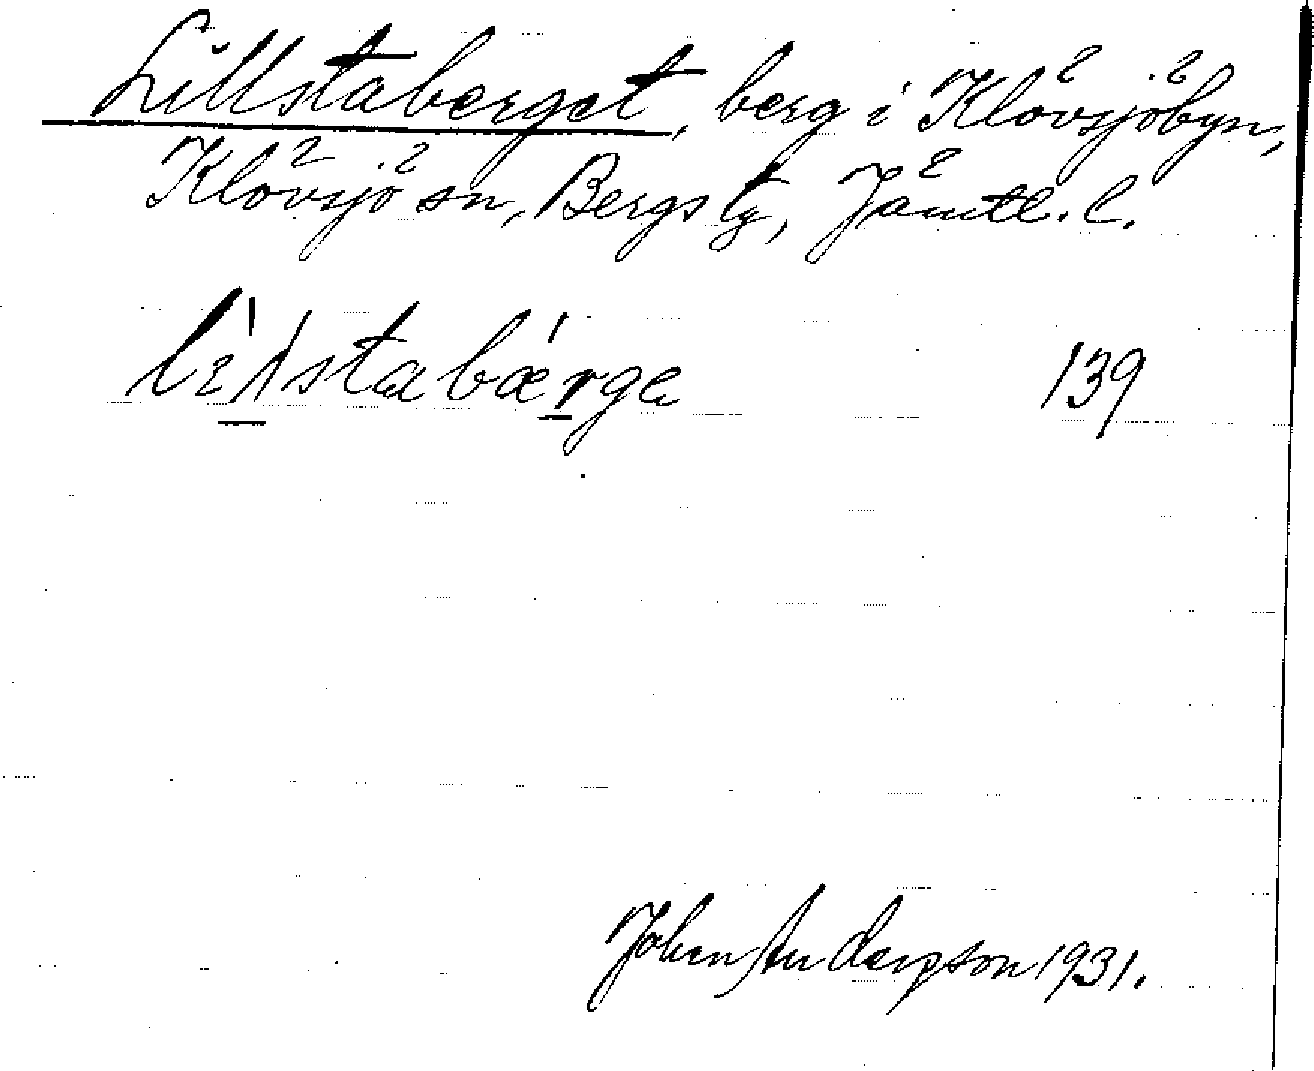 Lillstaberget, berg i Klövsjöbyn,
Klövsjö sn, Bergs tg, Jämtl. l.
139
John Anderson 1931.